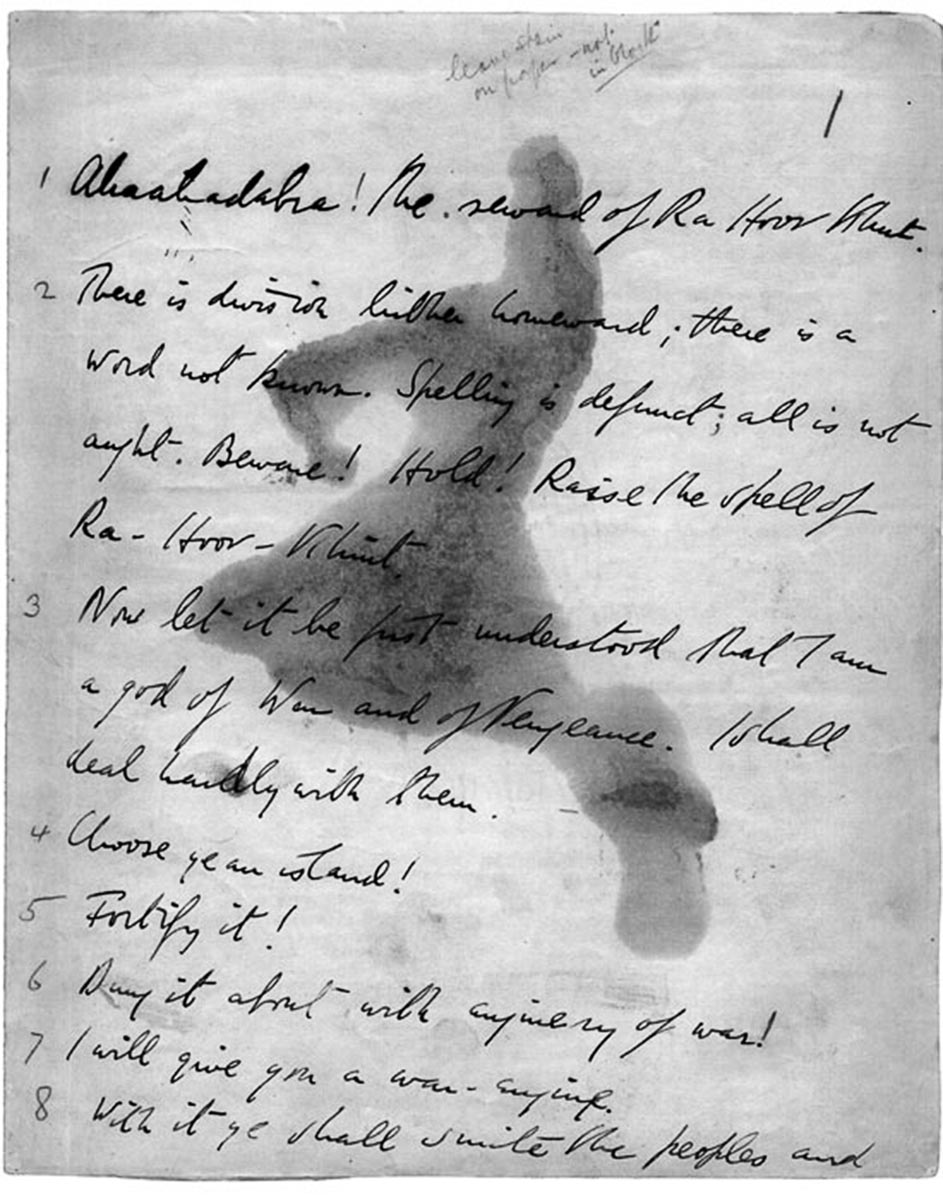 leave stain
on paper - not
in block
1
1 Abrahadabra! The reward of Ra Hoor Khut.
2 There is division hither homeward; there is a
word not known. Spelling is defunct; all is not
aught. Beware! Hold! Raise the spell of
Ra-Hoor-Khuit.
3 Now let it be first understood that I am
a god of War and of Vengeance. I shall
deal hardly with them.
4 Choose ye an island!
5 Fortify it!
6 Dung it about with enginery of war!
7 I will give you a war-engine.
8 With it ye shall smite the peoples and